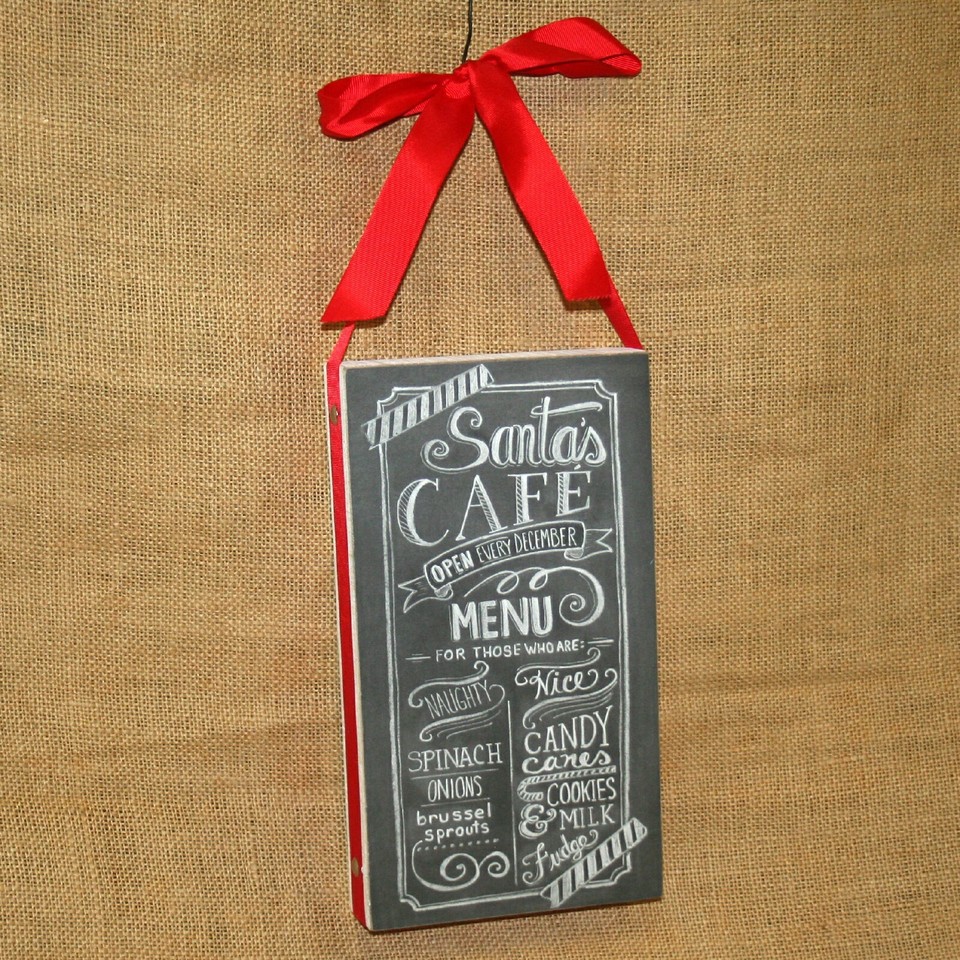 Santa's
CAFÉ
OPEN EVERY DECEMBER
MENU
FOR THOSE WHO ARE:
NAUGHTY
SPINACH
ONIONS
brussel
sprouts
Nice
CANDY
canes
COOKIES
& MILK
Fudge